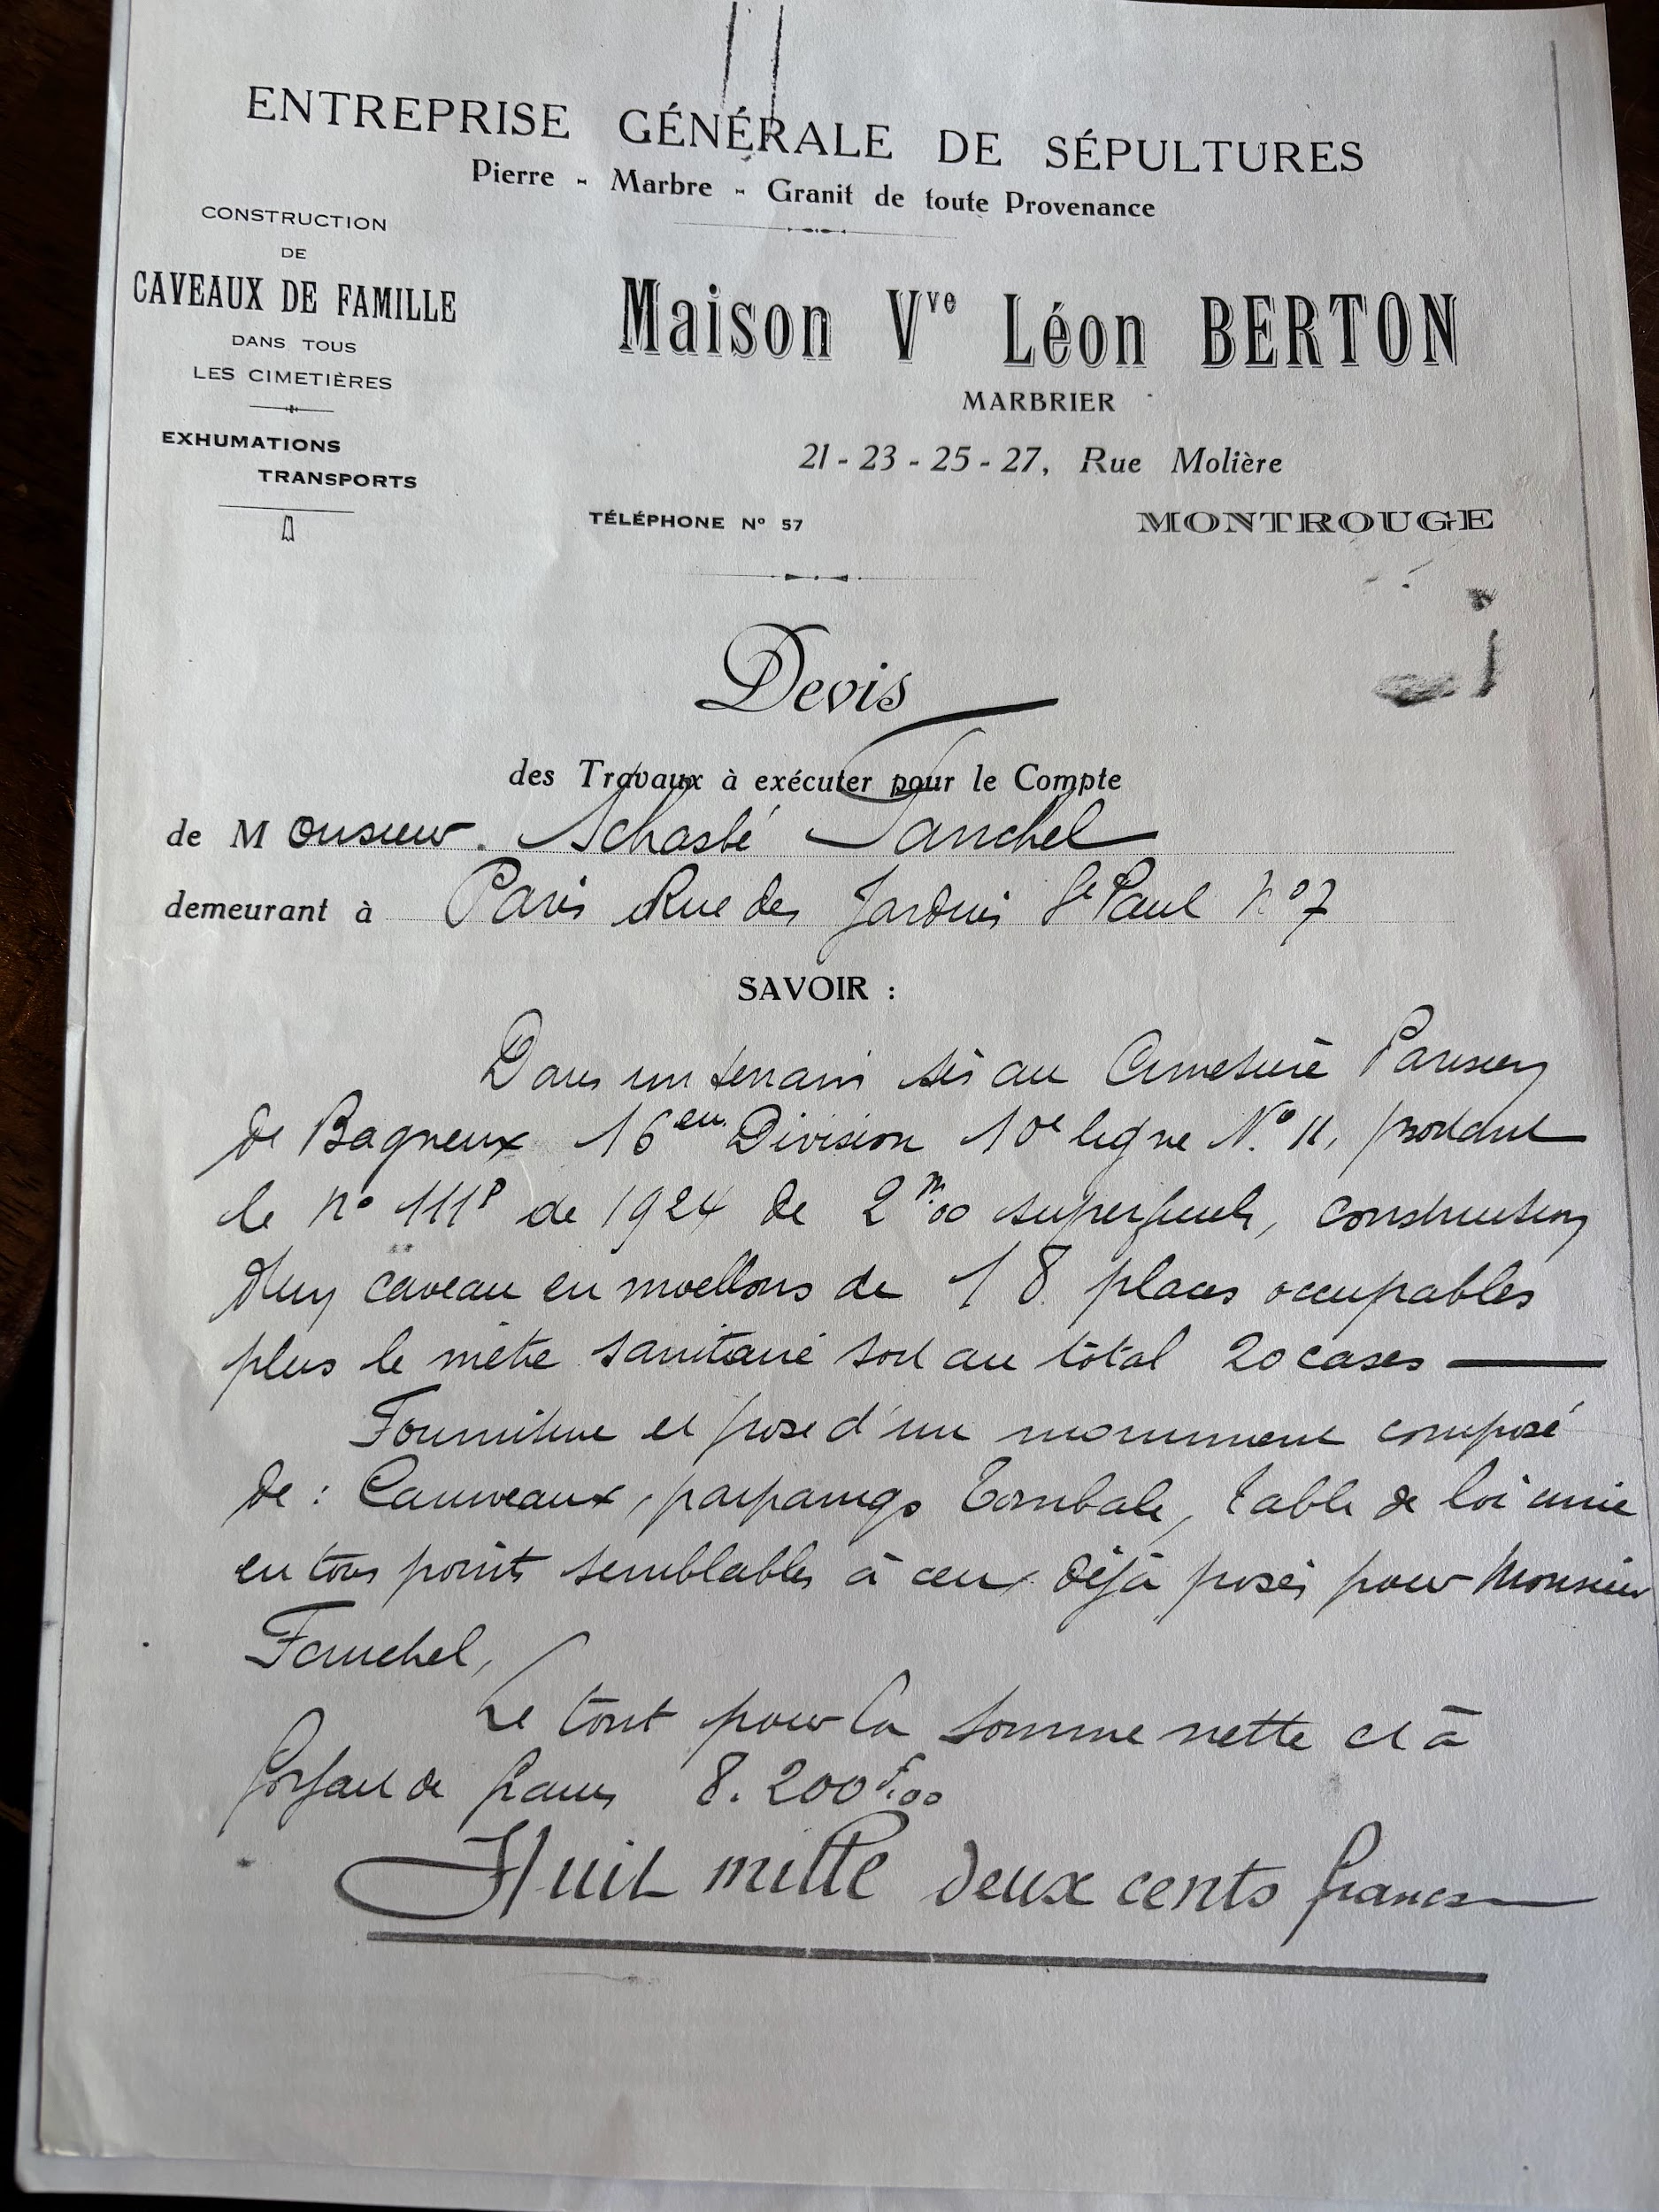 ENTREPRISE GÉNÉRALE DE SÉPULTURES
Pierre - Marbre - Granit de toute Provenance
CONSTRUCTION
DE
CAVEAUX DE FAMILLE
DANS TOUS
LES CIMETIÈRES
EXHUMATIONS
TRANSPORTS
Maison Vve Léon BERTON
MARBRIER
21 - 23 - 25 - 27, Rue Molière
TÉLÉPHONE No 57
MONTROUGE
Devis
des Travaux à exécuter pour le Compte
de Monsieur.
demeurant à Paris Rue des Jardins St Paul No 7
SAVOIR :
Dans un terrain sis au Cimetière Parisien
de Bagneux 16em Division 10e ligne No 11, portant
le no 111P de 1924 de 2m00 superficiels, construction
d'un caveau en moellons de 18 places occupables
plus le mètre sanitaire soit au total 20 cases
Fourniture et pose d'un monument composé
de : Caniveaux, parpaings Tombale, table de loi unie
en tous points semblables à ceux déjà posés pour Monsieur
Le tout pour la somme nette et à
forfait de francs 8.200f.00
Huit mille deux cents francs